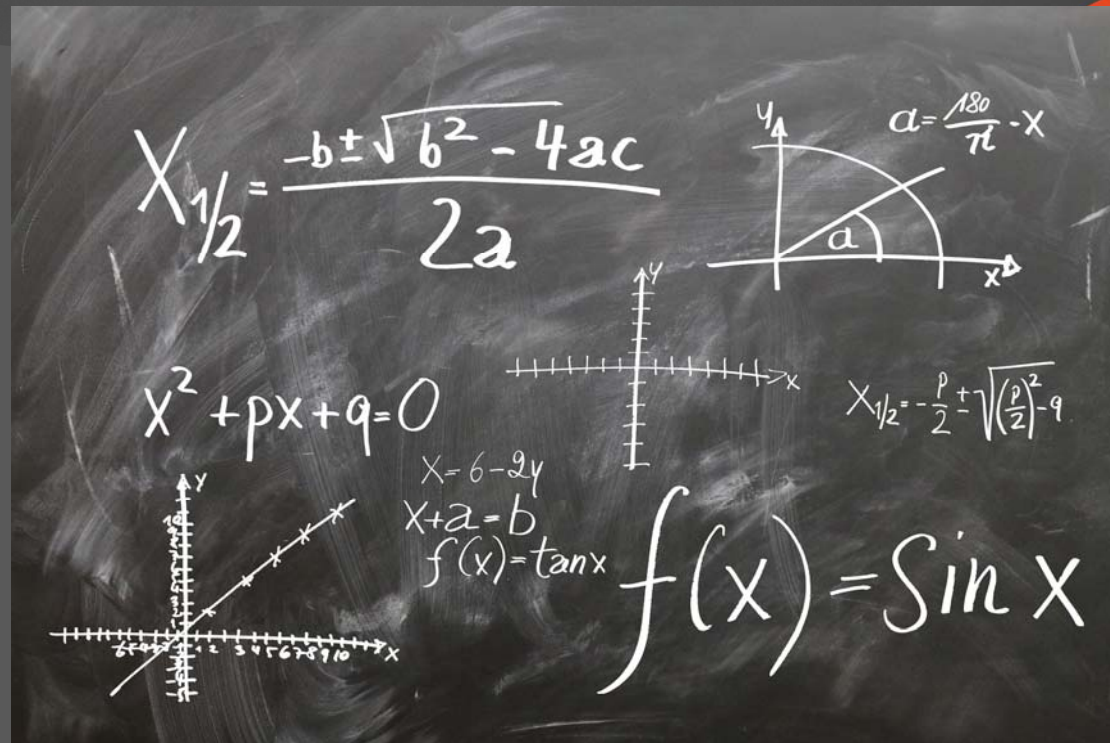 X1/2 = -b±√b² - 4ac / 2a
y
a = 180/π - X
a
x
y
x
x² + px + q = 0
X1/2 = -p/2 ± √(p/2)² - q
X = 6 - 2y
x + a = b
f(x) = tan x
f(x) = Sin x
y
x